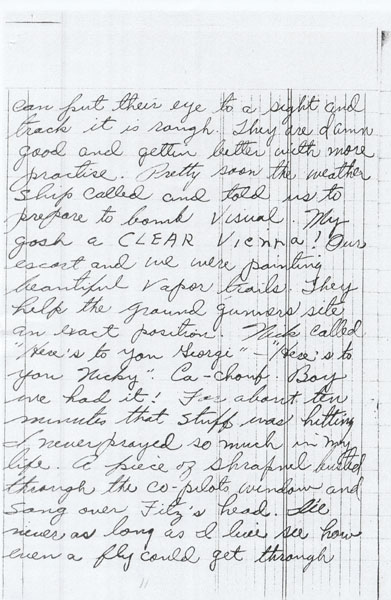 can put their eye to a sight and
track it is rough. They are damn
good and gettin better with more
practise. Pretty soon the weather
ship called and told us to
prepare to bomb visual. My
gosh a CLEAR Vienna! Our
escort and we were painting
beautiful vapor trails. They
help the ground gunners site
an exact position. Nick called
"Here's to you Georgi" - "Here's to
you Nicky". Ca-chouf. Boy
we had it! For about ten
minutes that stuff was hitting
I never prayed so much in my
life. A piece of shrapnel busted
through the co-pilots window and
sang over Fitz's head. I'll
never as long as I live see how
even a fly could get through